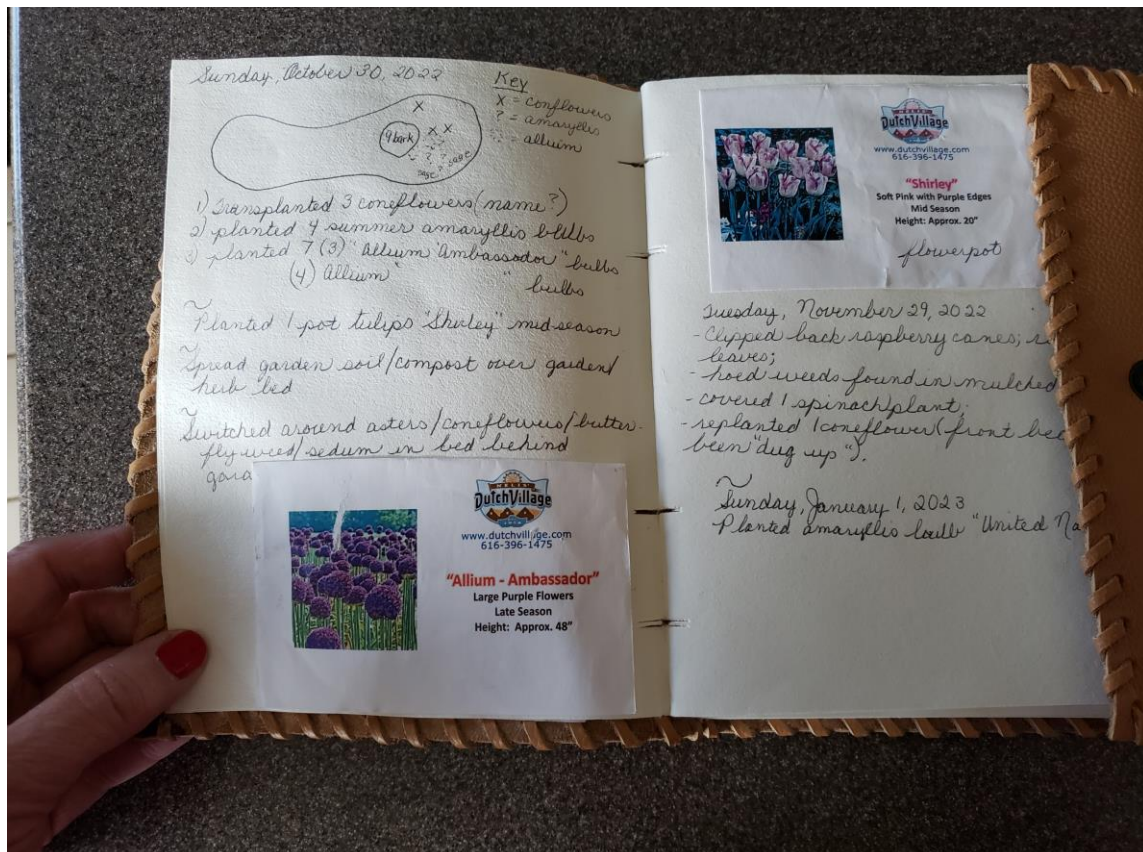 Sunday, October 30, 2022
Key
X = conflowers
? = amaryllis
∴ = alluim
9bark
sage
sage
1) Transplanted 3 coneflowers (name?)
2) planted 4 summer amaryllis bulbs
3) planted 7 (3) "Allium Ambassador" bulbs
(4) Allium " " bulbs
~
Planted 1 pot tulips "Shirley" mid-season
Spread garden soil/compost over garden/
herb bed
Switched around asters/coneflowers/butter-
fly weed/sedum in bed behind
gara
MELIS'
DutchVillage
www.dutchvillage.com
616-396-1475
"Allium - Ambassador"
Large Purple Flowers
Late Season
Height: Approx. 48"
DutchVillage
www.dutchvillage.com
616-396-1475
"Shirley"
Soft Pink with Purple Edges
Mid Season
Height: Approx. 20"
flowerpot
Tuesday, November 29, 2022
- Clipped back raspberry canes;
leaves;
- hoed weeds found in mulched
- covered 1 spinach plant;
- replanted 1 coneflower (front
been "dug up").
~
Sunday, January 1, 2023
Planted amaryllis bulb "United